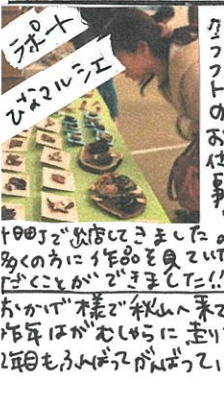 ラポート
ひなマルシェ
クラフトのお仕事
十日町で出店してきました。
多くの方に作品を見ていた
だくことができました!!
おかげ様で秋山へ来て
昨年はがむしゃらに走り
2年目もふんばってがんばって、